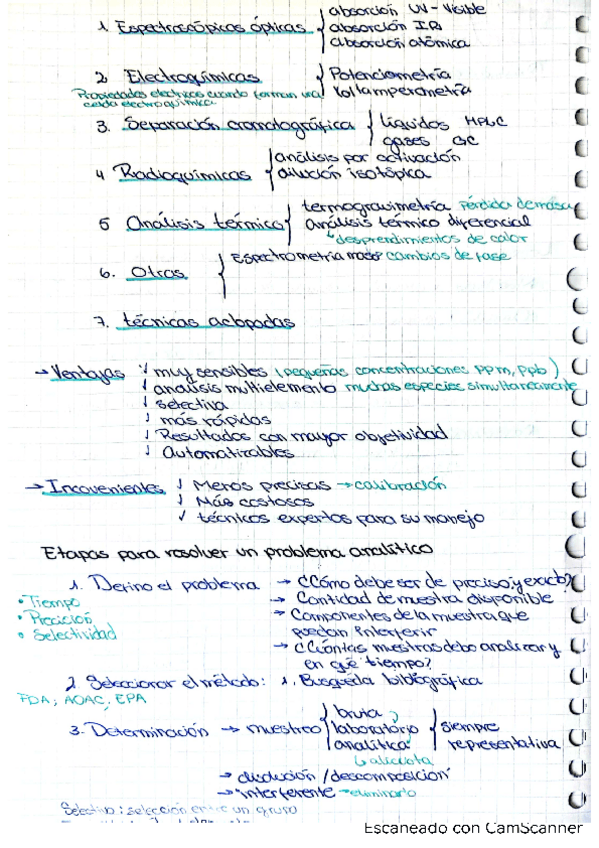 absorción UV-Visible
1. Espectroscópicas ópticas absorción IR
absorción atómica
2. Electroquímicas Potenciometría
Propiedades eléctricas cuando forman una Voltamperometría
celda electroquímica
3. Separación cromatográfica líquidos HPLC
gases GC
4 Radioquímicas análisis por activación
dilución isotópica
5 Análisis térmico termogravimetría pérdida de masa
análisis térmico diferencial
desprendimientos de calor
6. Otras Espectrometría masas cambios de fase
7. técnicas acopadas
→ Ventajas ✓ muy sensibles (pequeñas concentraciones ppm, ppb)
✓ análisis multielemento muchas especies simultáneamente
✓ selectiva
✓ más rápidos
✓ Resultados con mayor objetividad
✓ Automatizables
→ Incovenientes ✓ Menos precisas → calibración
✓ Más costosos
✓ técnicos expertos para su manejo
Etapas para resolver un problema analítico
1. Defino el problema → ¿Cómo debe ser de preciso y exacto?
• Tiempo → Cantidad de muestra disponible
• Precición → Componentes de la muestra que
• Selectividad puedan interferir
→ ¿Cuántas muestras debo analizar y
en qué tiempo?
2. Seleccionar el método: 1. Busqueda bibliográfica
FDA, AOAC, EPA
3. Determinación → muestreo bruta
laboratorio siempre
analítica representativa
↳ alícuota
→ disolución / descomposición
→ interferente → eliminarlo
Selectivo: selección entre un grupo
Escaneado con CamScanner